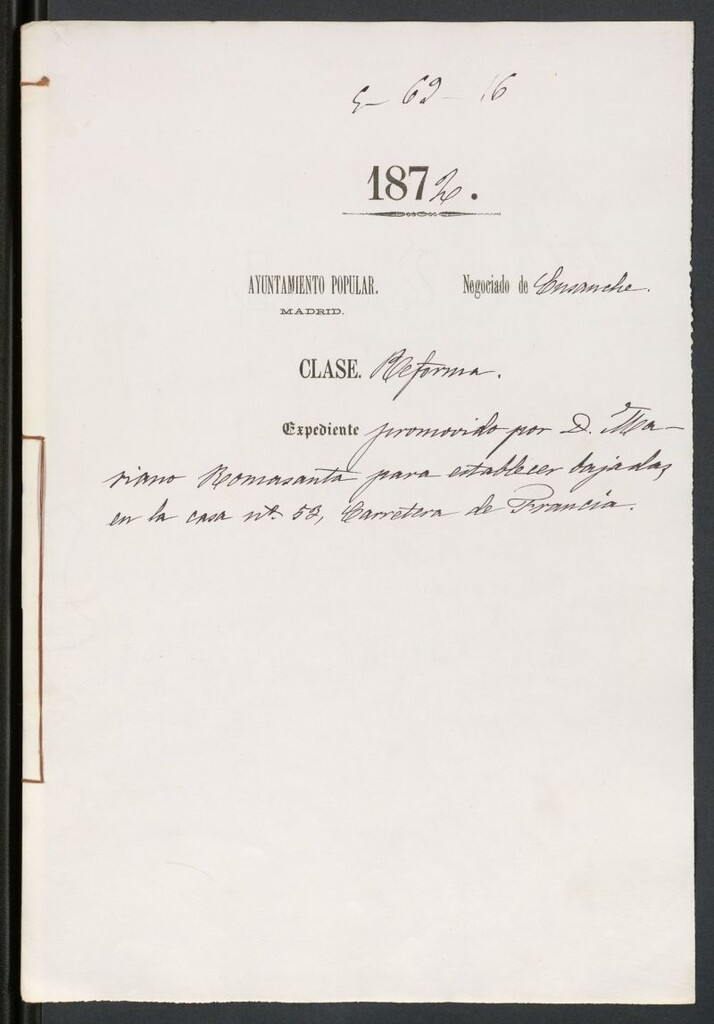 5-69-16
1872.
AYUNTAMIENTO POPULAR.
MADRID.
Negociado de Ensanche.
CLASE. Reforma.
Expediente promovido por D. Ma-
riano Romasanta para establecer bajadas
en la casa nº 53, Carretera de Francia.